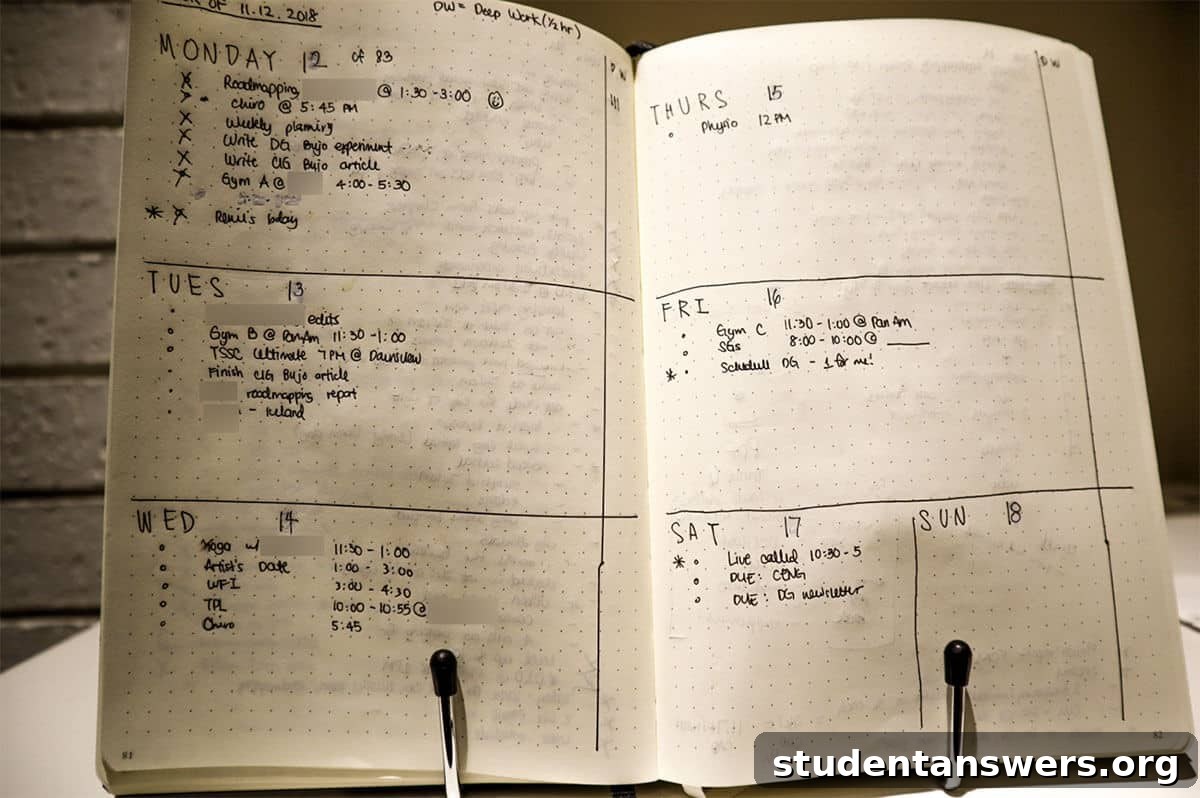 OF 11.12.2018
DW = Deep Work (1/2 hr)
MONDAY 12 of 83
DW
Roadmapping @ 1:30-3:00
Chiro @ 5:45 PM
Weekly planning
Write DG Bujo experiment
Write CIG Bujo article
Gym A @ 4:00-5:30
* bday
TUES 13
edits
Gym B @ PanAm 11:30-1:00
TSSC Ultimate 7PM @ Downsview
Finish CIG Bujo article
roadmapping report
- Iceland
WED 14
Yoga w/ 11:30-1:00
Artist's Date 1:00-3:00
WFI 3:00-4:30
TPL 10:00-10:55 @
Chiro 5:45
81
DW
THURS 15
Physio 12PM
FRI 16
Gym C 11:30-1:00 @ Pan Am
SGs 8:00-10:00 @
* Schedule DG - 1 for me!
SAT 17
* Live called 10:30-5
DUE: CENG
DUE: DG newsletter
SUN 18
82
studentanswers.org